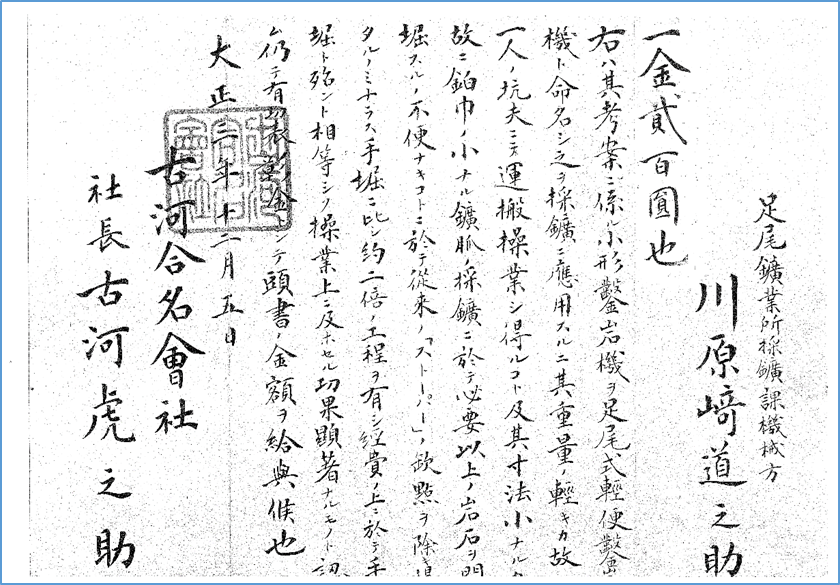 足尾鑛業所採鑛課機械方
川原﨑道之助
一金貳百圓也
右ハ其考案ニ係ル小形鑿岩機ヲ足尾式輕便鑿岩
機ト命名シ之ヲ採鑛ニ應用スルニ其重量ノ輕キカ故
一人ノ坑夫ニテ運搬操業シ得ルコト及其寸法小ナルカ
故ニ鉑巾ノ小ナル鑛脈ノ採鑛ニ於テ必要以上ノ岩石ヲ開
堀スルノ不便ナキコトニ於テ從来ノ「ストーパー」ノ欽點ヲ除
タルノミナラス手堀ニ比シ約二倍ノ工程ヲ有シ經費ノ上ニ於テ手
堀ト殆ント相等シク操業上ニ及ホセル功果顯著ナルモノト認
仍テ有功表彰金トシテ頭書ノ金額ヲ給與候也
大正三年十二月五日
古河合名會社
社長古河虎之助